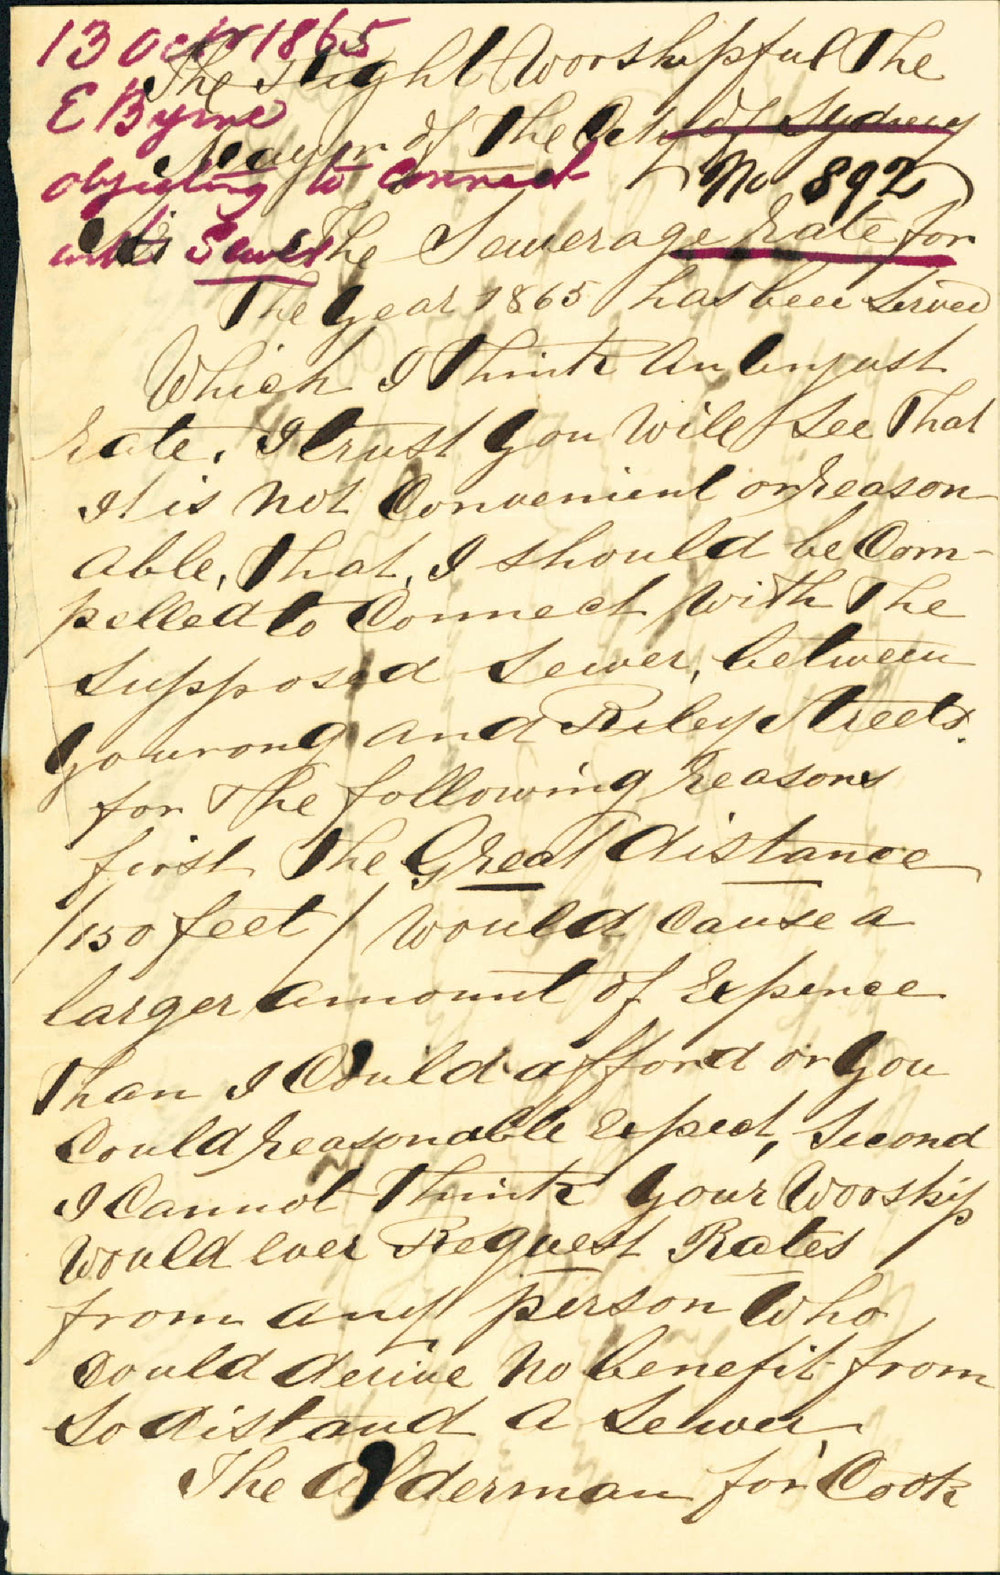 13 Octr 1865
E Byrne
objecting to connect
with Sewer
The Right Worshipful The
Mayor of The City of Sydney
No 892
Sir The Sewerage Rate for
The Year 1865 has been Served
Which I Think an unjust
Rate. I trust you will see That
It is not Convenient or reason-
able, That, I should be Com-
pelled to Connect with The
Supposed Sewer, between
Yourong and Riley Streets.
for The following reasons
first The Great distance
/150 feet/ would cause a
larger amount of Expence
Than I Could afford or You
Could reasonable Expect, Second
I Cannot Think your Worship
Would ever Request Rates
from any person Who
Could derive No benefit from
So distand a Sewer
The Alderman for Cook